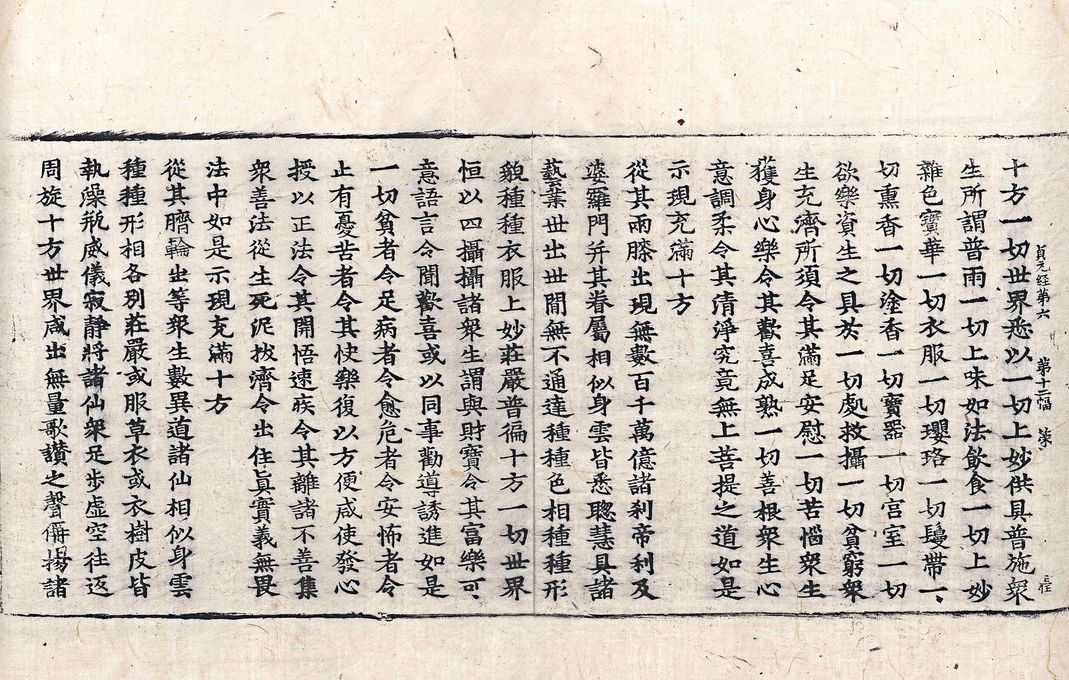 十方一切世界悉以一切上妙供具普施衆
貞元経第六 第十二幅 策
生所謂普雨一切上味如法飲食一切上妙
雜色寶華一切衣服一切瓔珞一切鬘帶一
切熏香一切塗香一切寶器一切宮室一切
欲樂資生之具於一切處救攝一切貧窮衆
生充濟所須令其滿足安慰一切苦惱衆生
獲身心樂令其歡喜成熟一切善根衆生心
意調柔令其清淨究竟無上菩提之道如是
示現充滿十方
從其兩膝出現無數百千萬億諸刹帝利及
婆羅門并其眷屬相似身雲皆悉聰慧具諸
藝業世出世間無不通達種種色相種種形
貌種種衣服上妙莊嚴普徧十方一切世界
恒以四攝攝諸衆生謂與財寶令其富樂可
意語言令聞歡喜或以同事勸導誘進如是
一切貧者令足病者令愈危者令安怖者令
止有憂苦者令其快樂復以方便咸使發心
授以正法令其開悟速疾令其離諸不善集
衆善法從生死泥拔濟令出住眞實義無畏
法中如是示現充滿十方
從其臍輪出等衆生數異道諸仙相似身雲
種種形相各別莊嚴或服草衣或衣樹皮皆
執澡瓶威儀寂靜將諸仙衆足步虛空往返
周旋十方世界咸出無量歌讚之聲稱揚諸